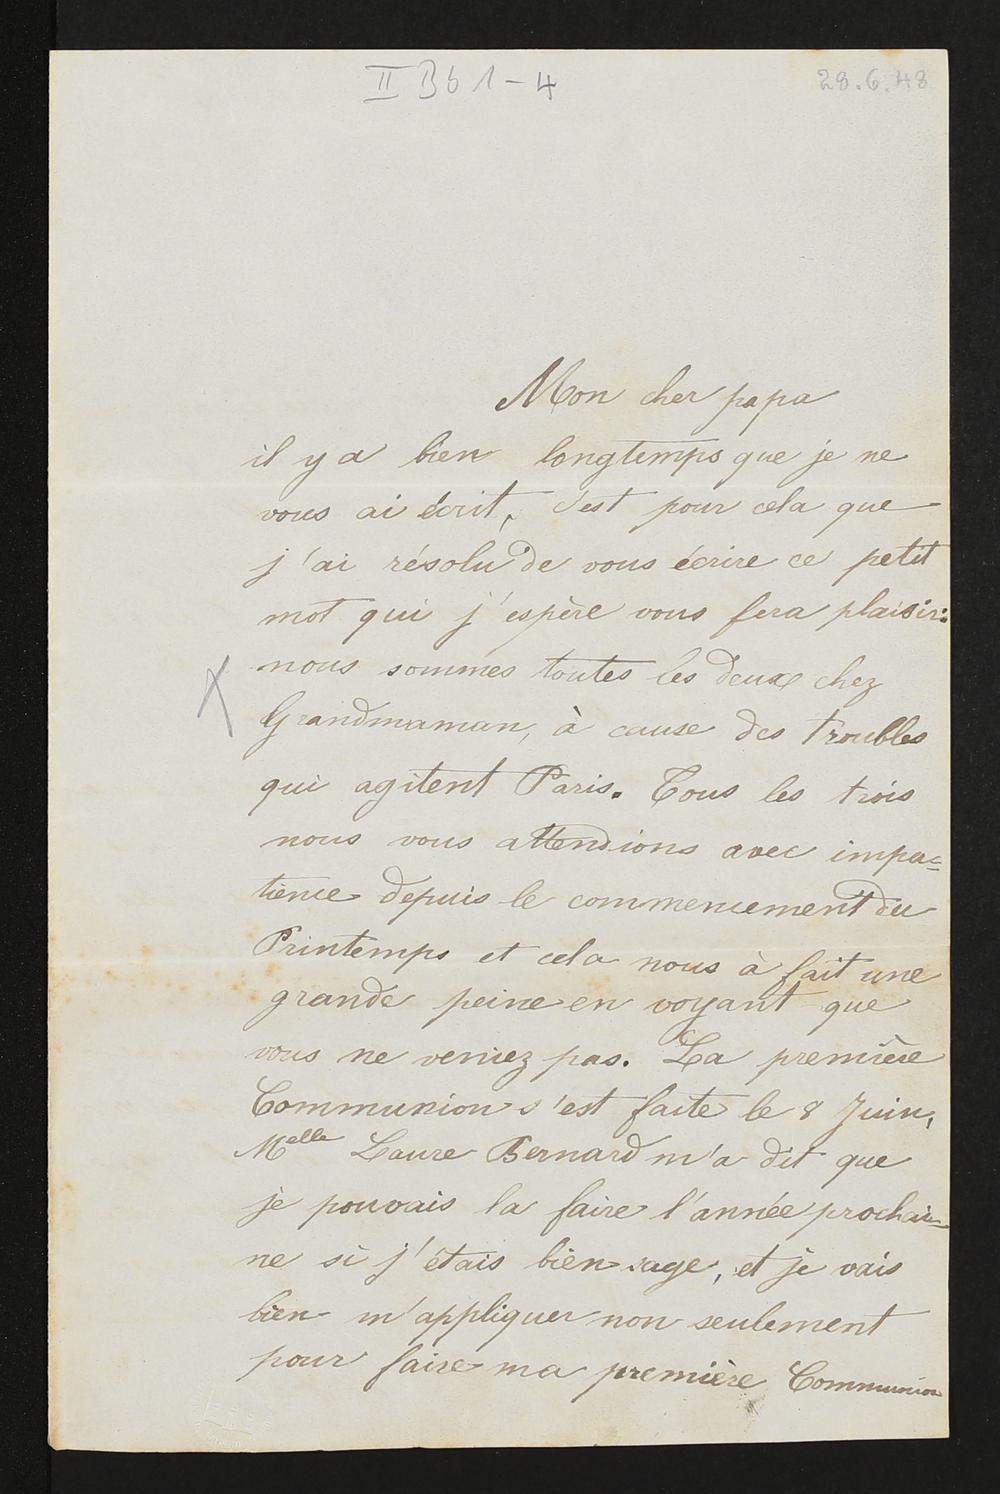 II Bb 1-4
28.6.48
Mon cher papa
il y a bien longtemps que je ne
vous ai écrit, c'est pour cela que
j'ai résolu de vous écrire ce petit
mot qui j'espère vous fera plaisir:
nous sommes toutes les deux chez
Grandmaman, à cause des troubles
qui agitent Paris. Tous les trois
nous vous attendions avec impa=
tience depuis le commencement du
Printemps et cela nous à fait une
grande peine en voyant que
vous ne veniez pas. La première
Communion s'est faite le 8 Juin,
Melle Laure Bernard m'a dit que
je pouvais la faire l'année prochai=
ne si j'étais bien sage, et je vais
bien m'appliquer non seulement
pour faire ma première Communion